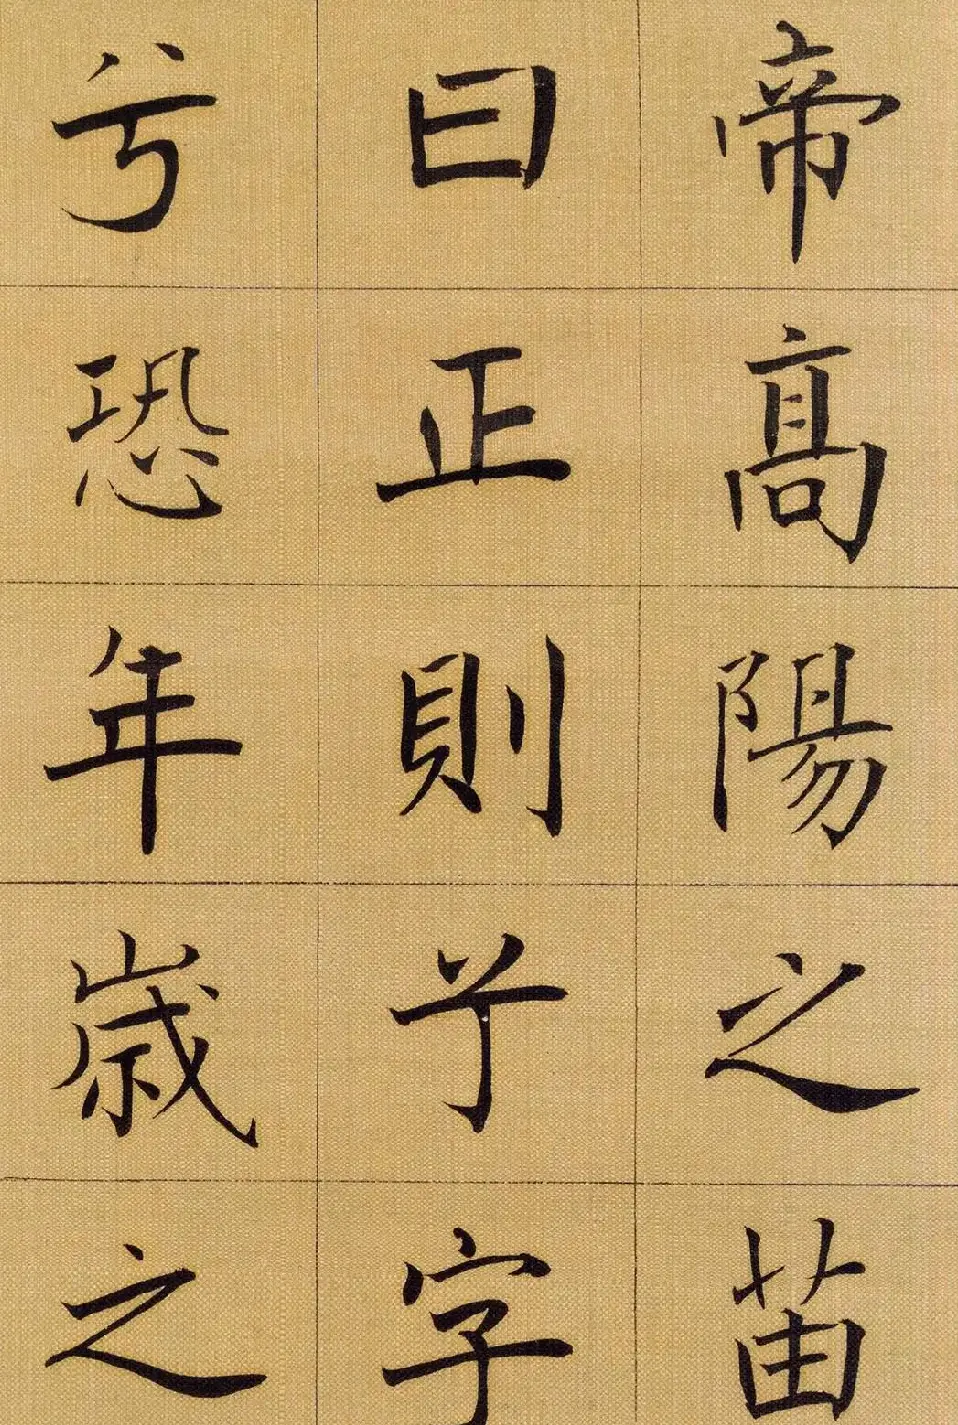 帝髙陽之苗
曰正則兮字
兮恐年嵗之